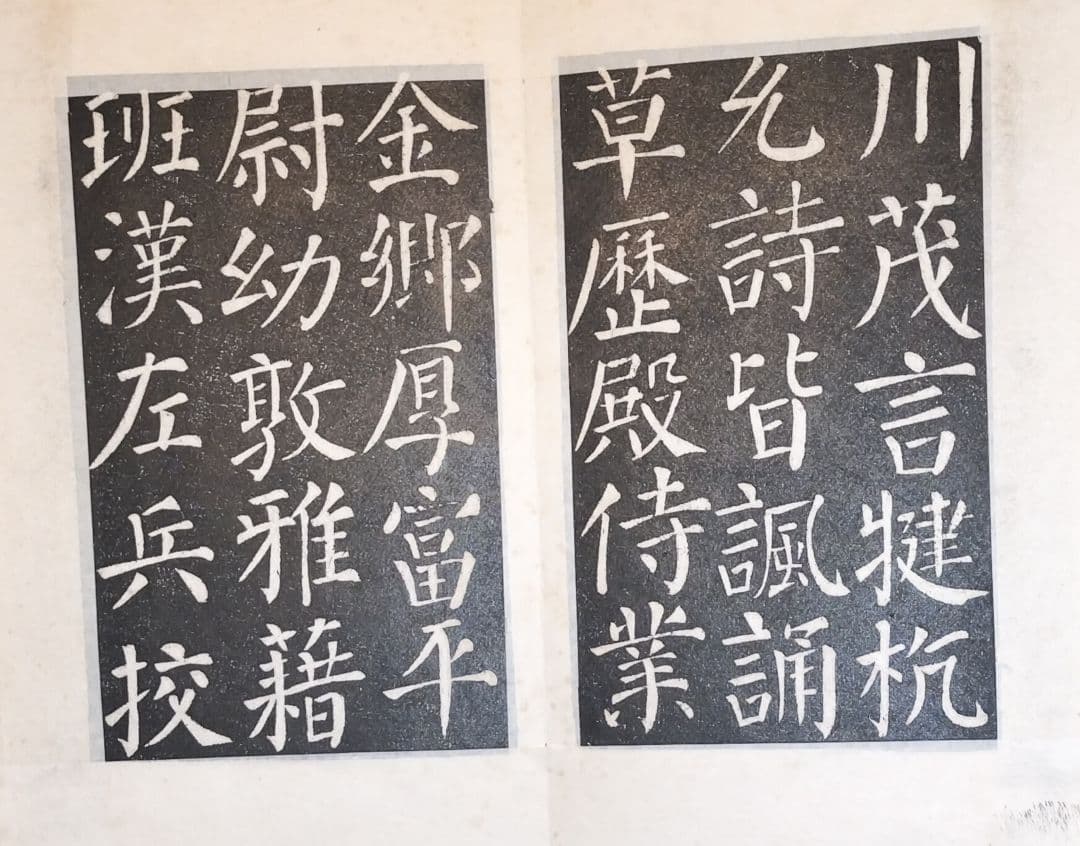 川茂言犍杭
允詩皆諷誦
草歷殿侍業
金鄉厚富平
尉幼敦雅藉
班漢左兵挍